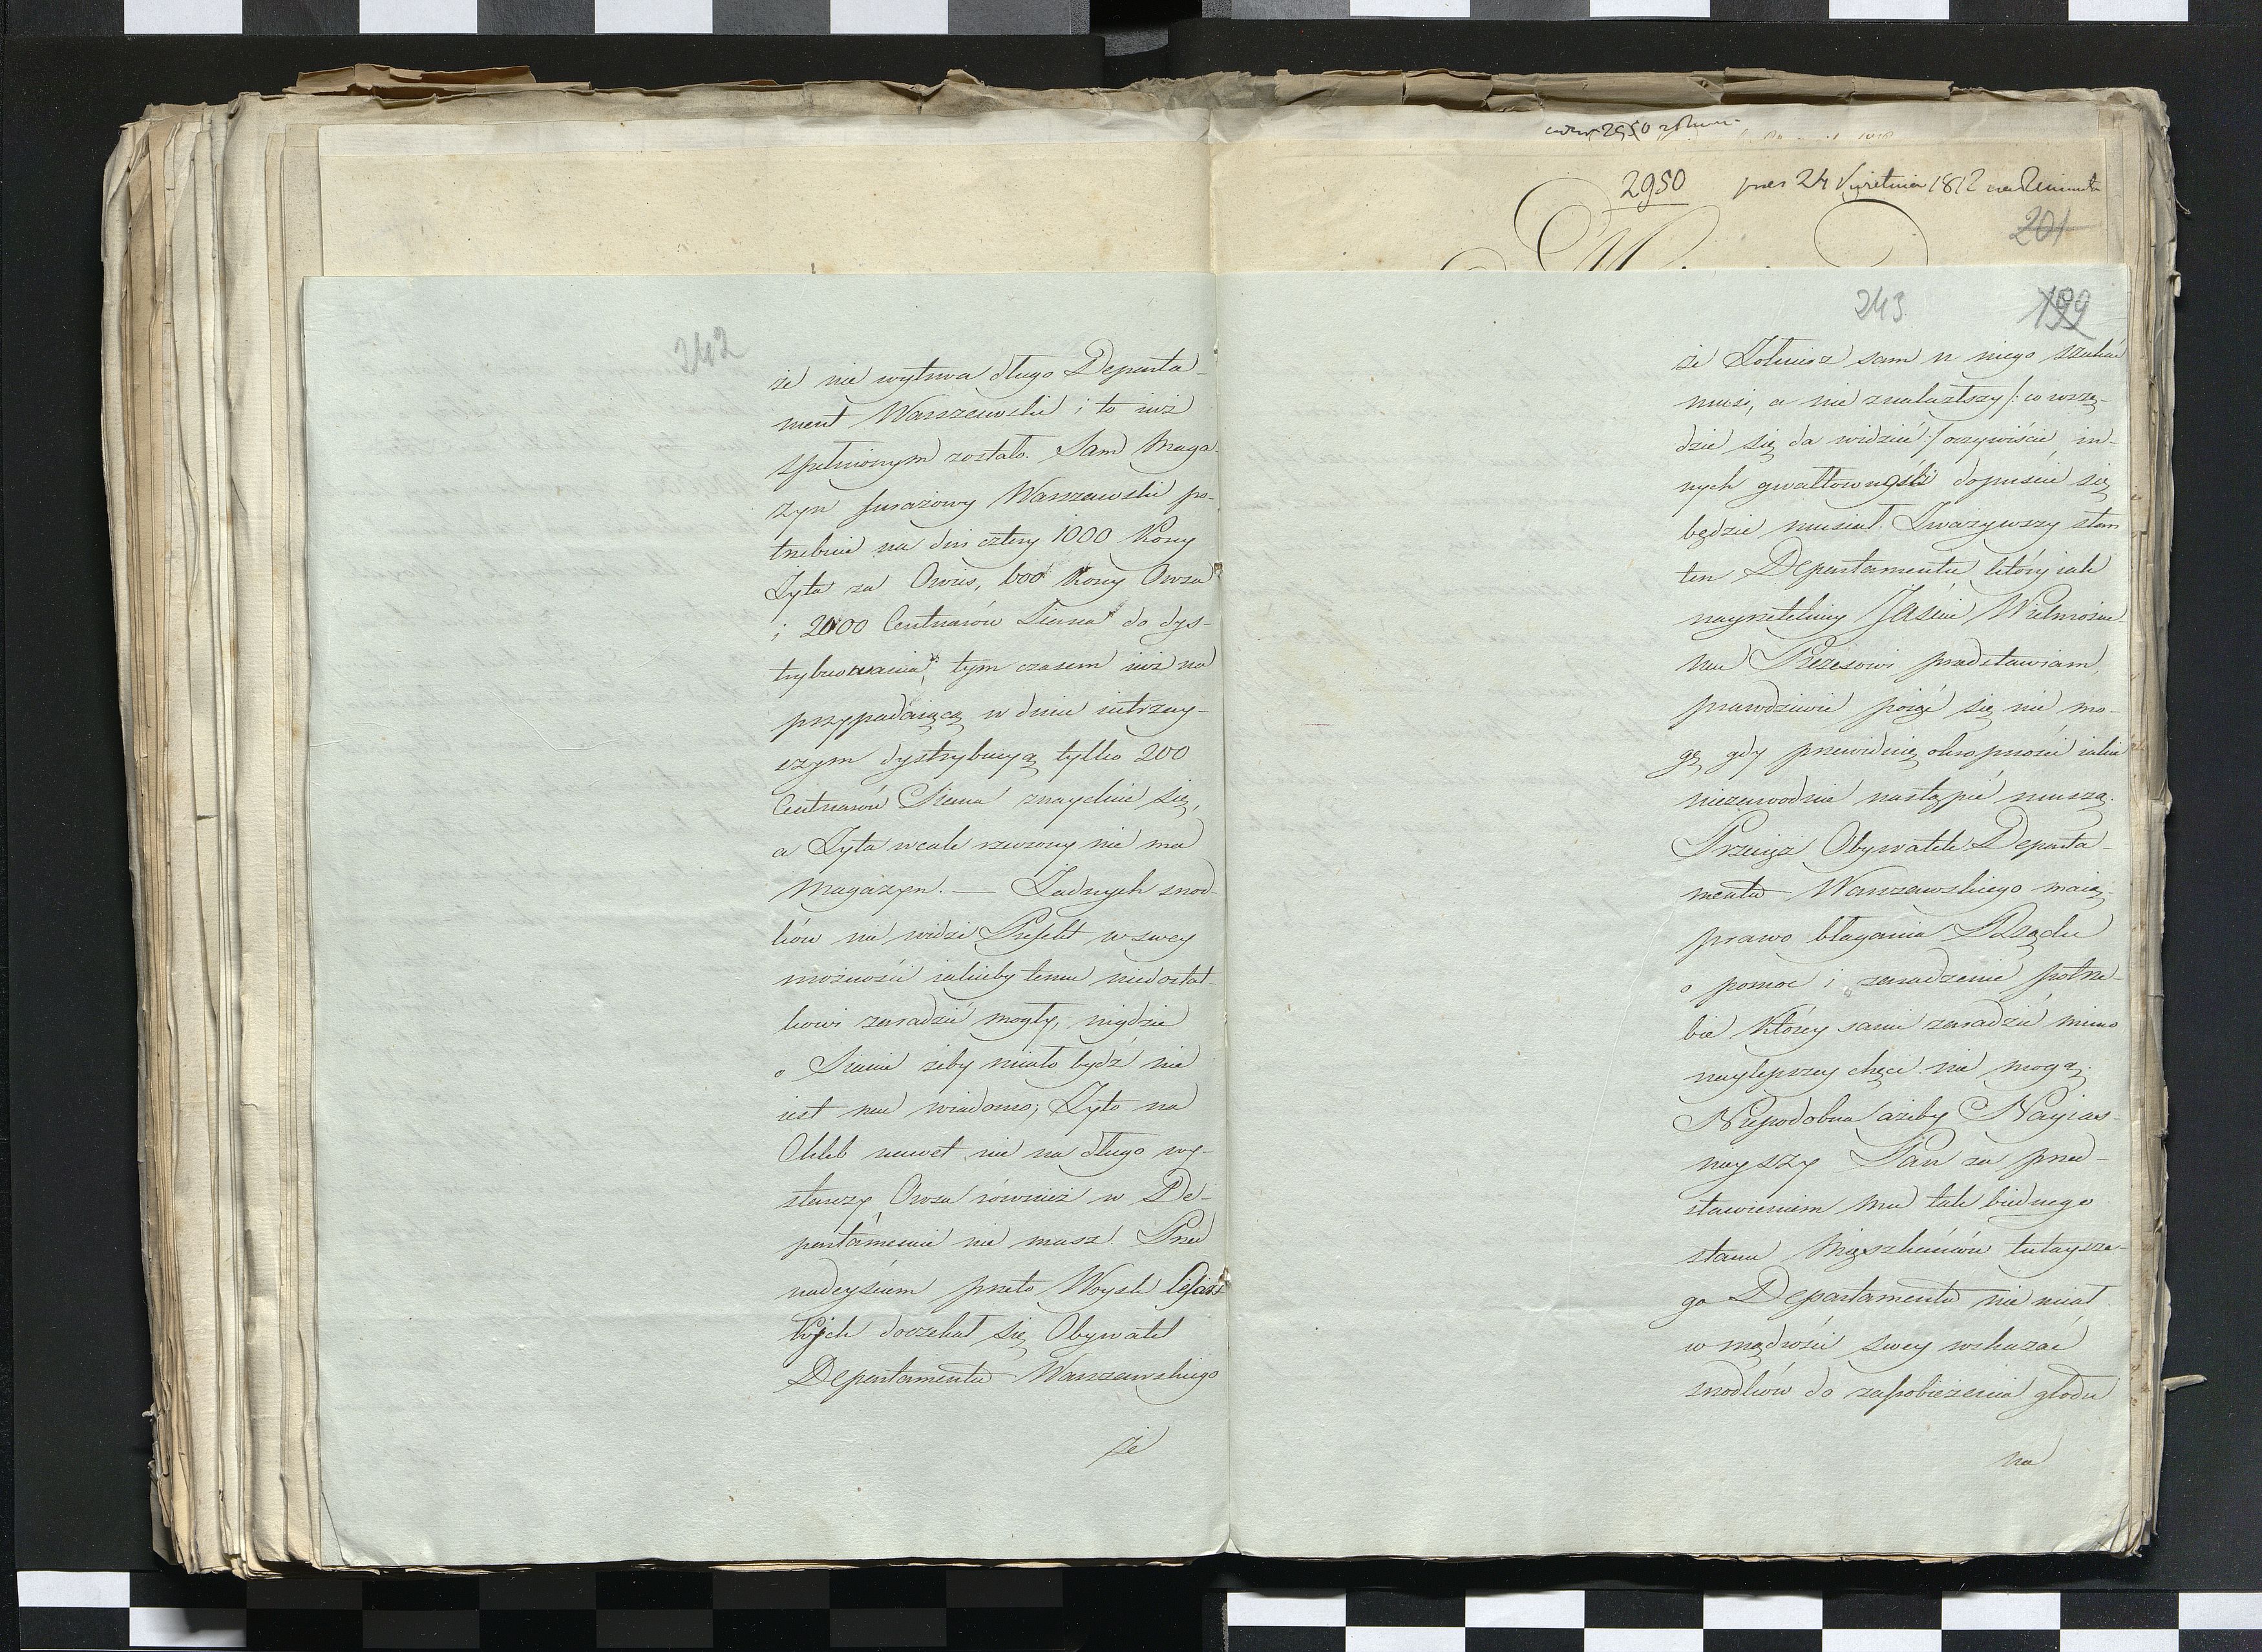 2950
2950 24 Kwietnia 1812
201
242
że nie wytrwa długo Departa-
ment Warszawski i to iuż
spełnionym zostało. Sam Maga-
zyn furażowy Warszawski po-
trzebuie na dni cztery 1000 Korcy
Żyta za Owies, 600 Korcy Owsa
i 2000 Centnarów Siana do dys-
trybuowania, tym czasem iuż na
przypadaiącą w dniu iutrzey-
szym dystrybucyą tylko 200
Centnarów Siana znayduie się,
a Żyta wcale rzeczony nie ma
Magazyn. — Żadnych srod-
ków nie widzi Prefekt w swey
możności iakieby temu niedostat-
kowi zaradzić mogły, nigdzie
o Sianie żeby miało bydź nie
iest mu wiadomo; Żyto na
Chleb nawet nie na długo wy-
starczy Owsa również w De-
partamencie nie masz. Przed
nadeyściem przeto Woysk Cesars-
kich doczekał się Obywatel
Departamentu Warszawskiego
że
243
199
że Żołnierz sam u niego szukać
musi, a nie znalazłszy /: co wszę-
dzie się da widzieć :/ oczywiście in-
nych gwałtowności dopuścić się
będzie musiał. Zważywszy stan
ten Departamentu który iak
nayrzetelniey Jaśnie Wielmożne-
mu Prezesowi przedstawiam,
prawdziwie poiąć się nie mo-
gę gdy przewiduię okropności iakie
niezawodnie nastąpić muszą.
Przecięż Obywatele Departa-
mentu Warszawskiego maią
prawo błagania Rządu
o pomoc i zaradzenie potrze-
bie którey sami zaradzić mimo
naylepszey chęci nie mogą.
Niepodobna ażeby Nayias-
nieyszy Pan za przed-
stawieniem mu tak biednego
stanu Mieszkańców tuteysze-
go Departamentu nie miał
w mądrości swey wskazać
srodków do zapobieżenia głodu
na